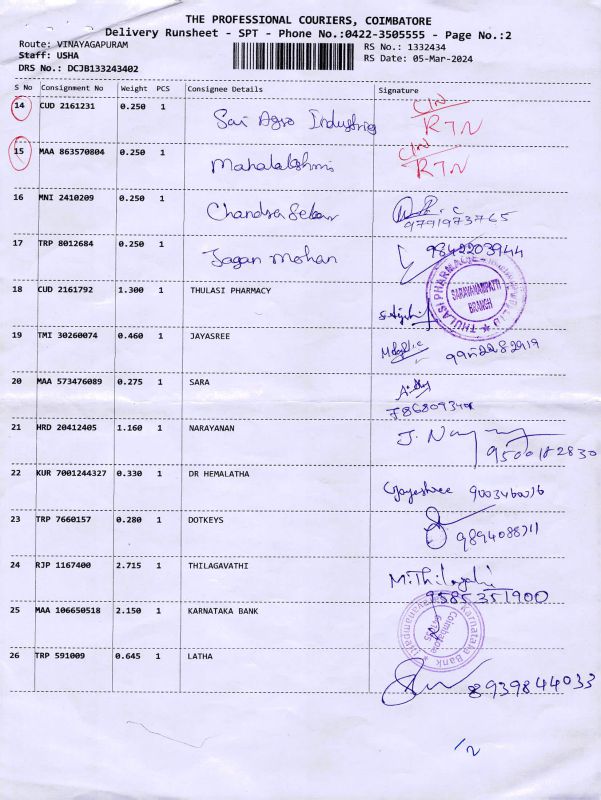 THE PROFESSIONAL COURIERS, COIMBATORE
Delivery Runsheet - SPT - Phone No.:0422-3505555 - Page No.:2
Route: VINAYAGAPURAM RS No.: 1332434
Staff: USHA RS Date: 05-Mar-2024
DRS No.: DCJB133243402
S No Consignment No Weight PCS Consignee Details Signature
14 CUD 2161231 0.250 1 Sai Agro Industries RTN
15 MAA 863570804 0.250 1 Mahalakshmi RTN
16 MNI 2410209 0.250 1 Chandra Sekar 9791973765
17 TRP 8012684 0.250 1 Jagan Mohan 9842203944
18 CUD 2161792 1.300 1 THULASI PHARMACY
THULASI PHARMACIE
SARAVANAMPATTI
BRANCH
19 TMI 30260074 0.460 1 JAYASREE
20 MAA 573476089 0.275 1 SARA
21 HRD 20412405 1.160 1 NARAYANAN 9500182830
22 KUR 7001244327 0.330 1 DR HEMALATHA Jayashree
23 TRP 7660157 0.280 1 DOTKEYS
24 RJP 1167400 2.715 1 THILAGAVATHI M.Thilagathi 9585351900
25 MAA 106650518 2.150 1 KARNATAKA BANK
Karnataka Bank
Coimbatore
26 TRP 591009 0.645 1 LATHA 8939844033